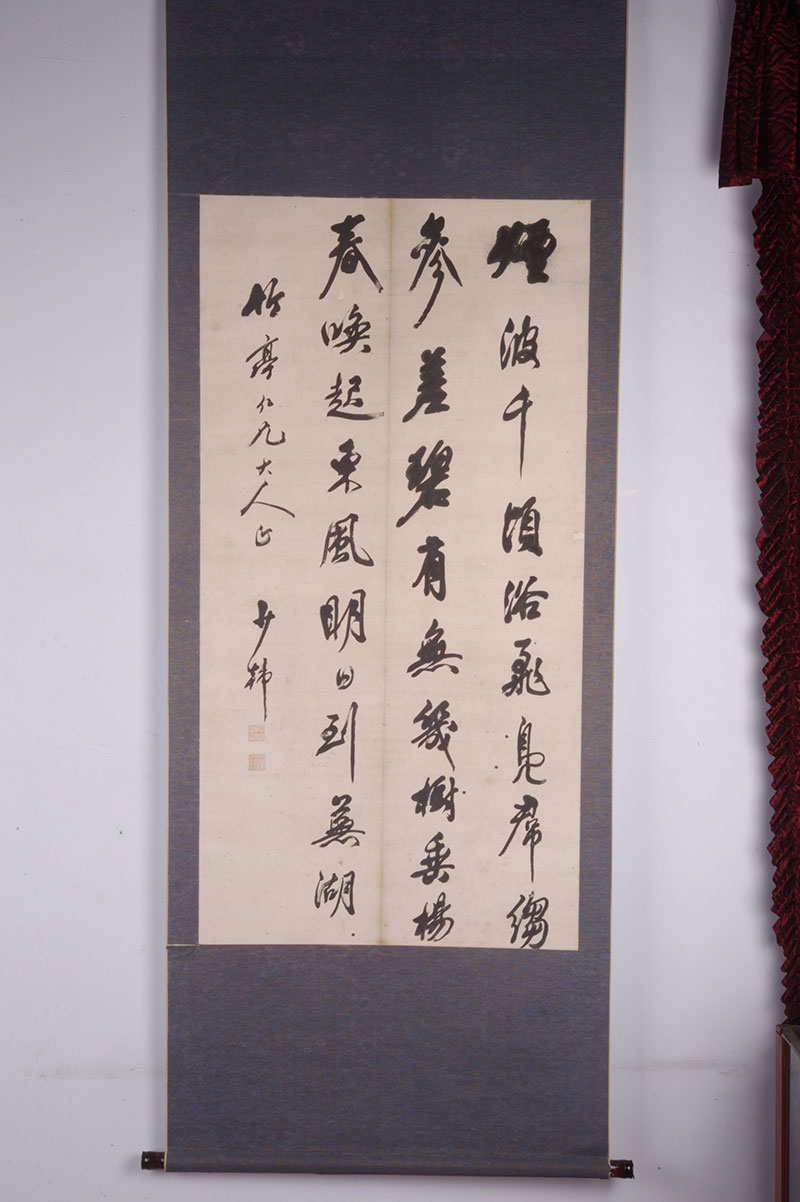 煙波千頃浴飛鳧縐
參差碧有無幾樹垂楊
春喚起東風明日到蕪湖
竹亭仁兄大人正
少韓